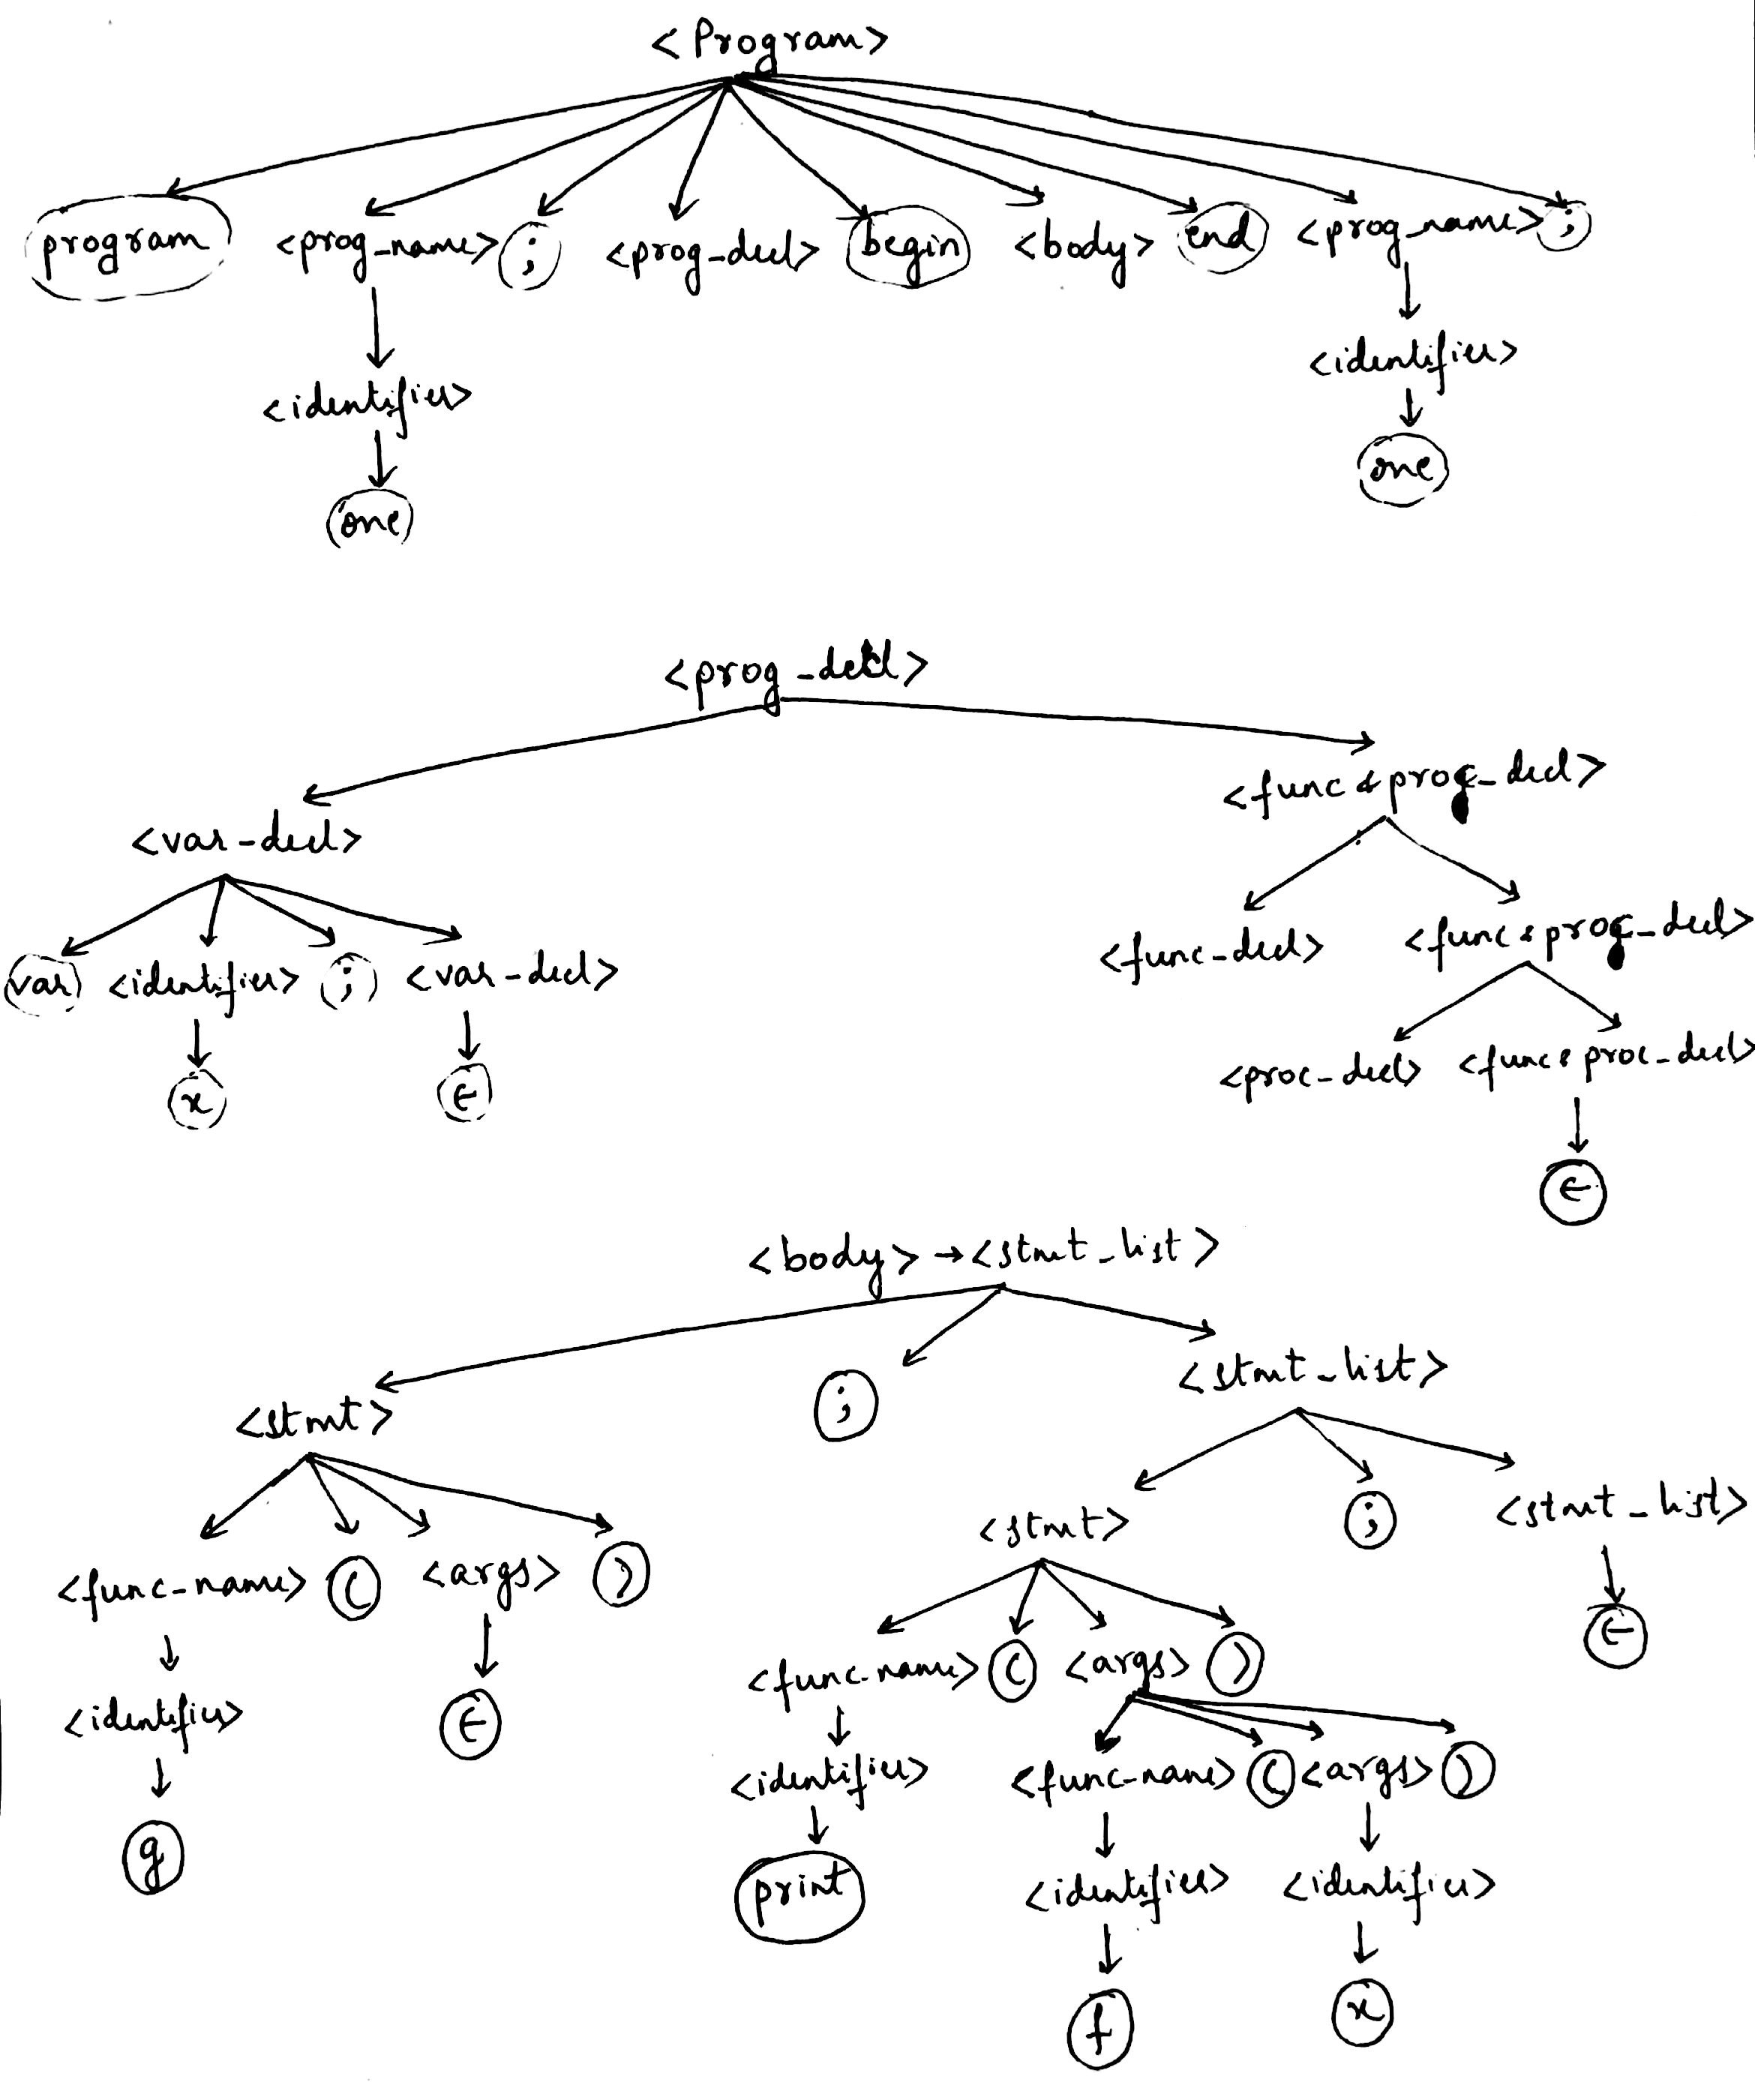 <Program>
program <prog_name> ; <prog_decl> begin <body> end <prog_name> ;
<identifier> <identifier>
one one
<prog_decl>
<var_decl> <func & proc_decl>
var <identifier> ; <var_decl> <func_decl> <func & proc_decl>
x ε <proc_decl> <func & proc_decl>
ε
<body> → <stmt_list>
<stmt> ; <stmt_list>
<func_name> ( <args> ) <stmt> ; <stmt_list>
<identifier> ε <func_name> ( <args> ) ε
g <identifier> <func_name> ( <args> )
print <identifier> <identifier>
f x